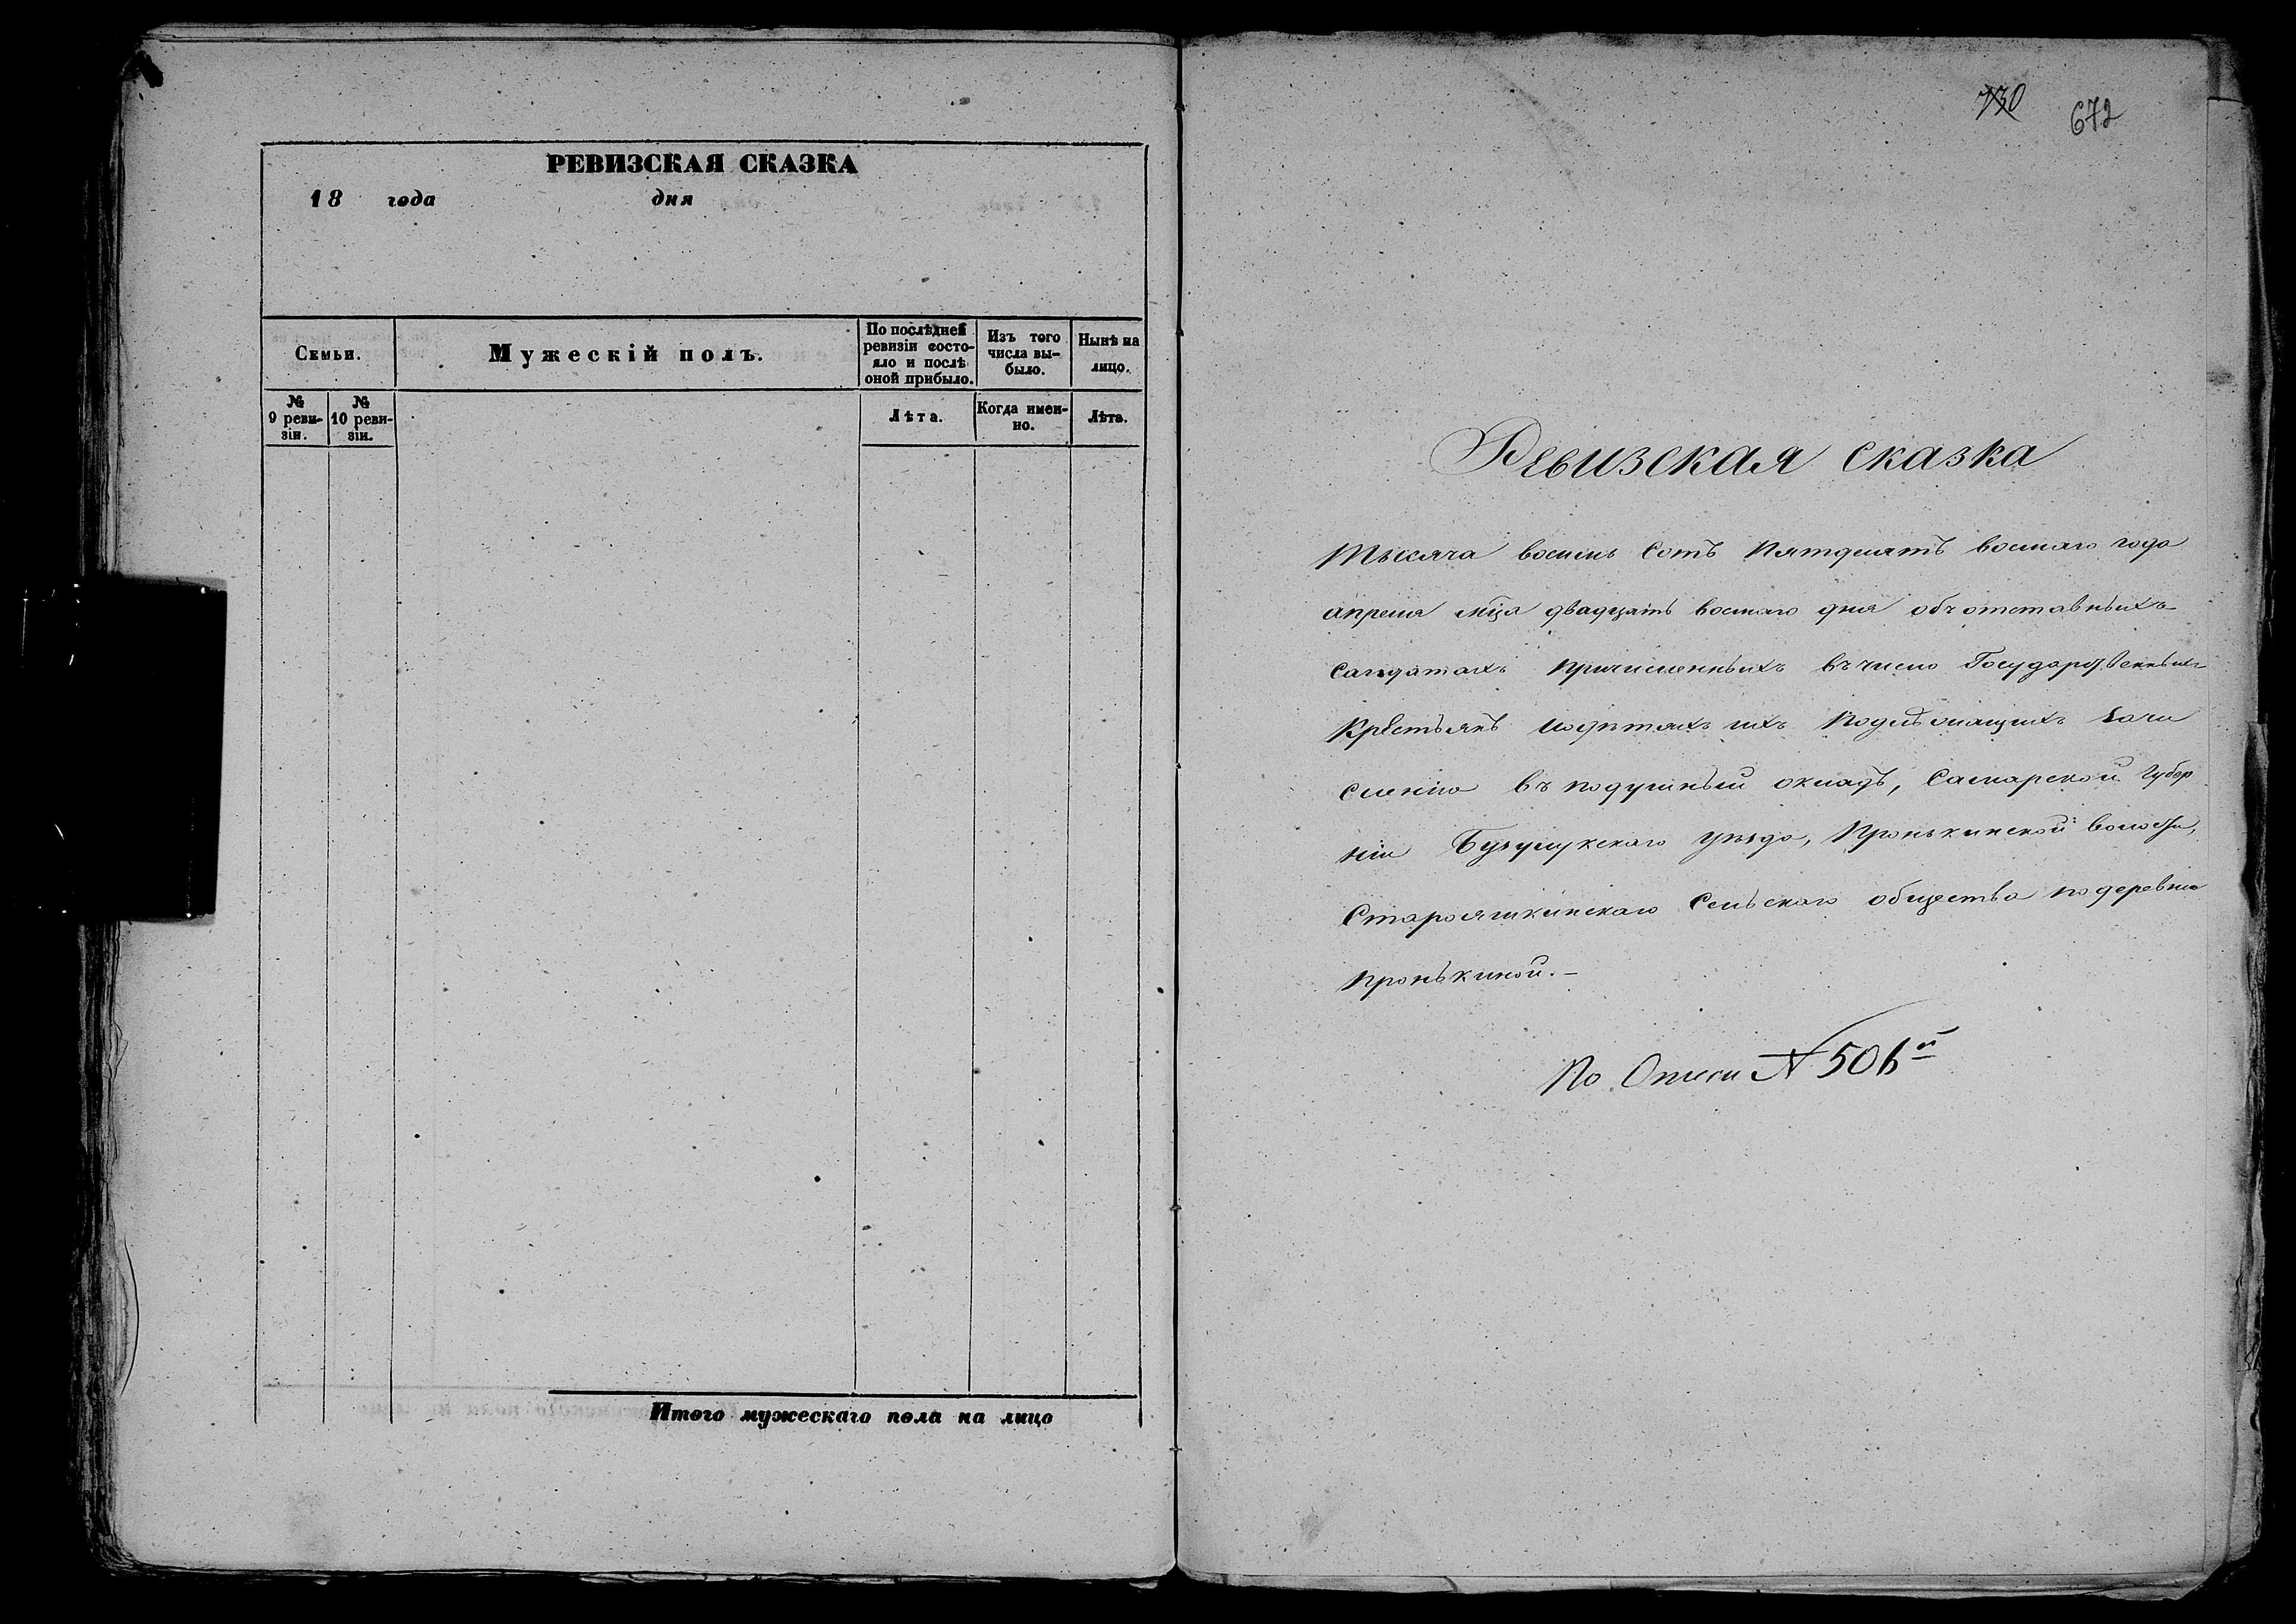 РЕВИЗСКАЯ СКАЗКА
18 года дня
Семьи.
Мужескій полъ.
По послѣдней ревизіи состо-
яло и послѣ оной прибыло.
Изъ того числа вы-
было.
Нынѣ на лицо.
№ 9 реви-
зіи.
№ 10 реви-
зіи.
Лѣта.
Когда имен-
но.
Лѣта.
Итого мужескаго пола на лицо
730 672
Ревизская сказка
Тысяча восемь сотъ Пятдесятъ восмаго года
апреля мца двадцать восмаго дня объ отставныхъ
салдатахъ причисленныхъ въ число Государственныхъ
Крестьянъ и о дѣтяхъ ихъ Подлѣжащихъ зачи
слению въ подушный окладъ, Самарской Губер
ніи Бузулукскаго уѣзда, Пронькинской волости,
Старояшкинскаго Сельскаго общества по деревни
Пронькиной.–
По Описи № 506й